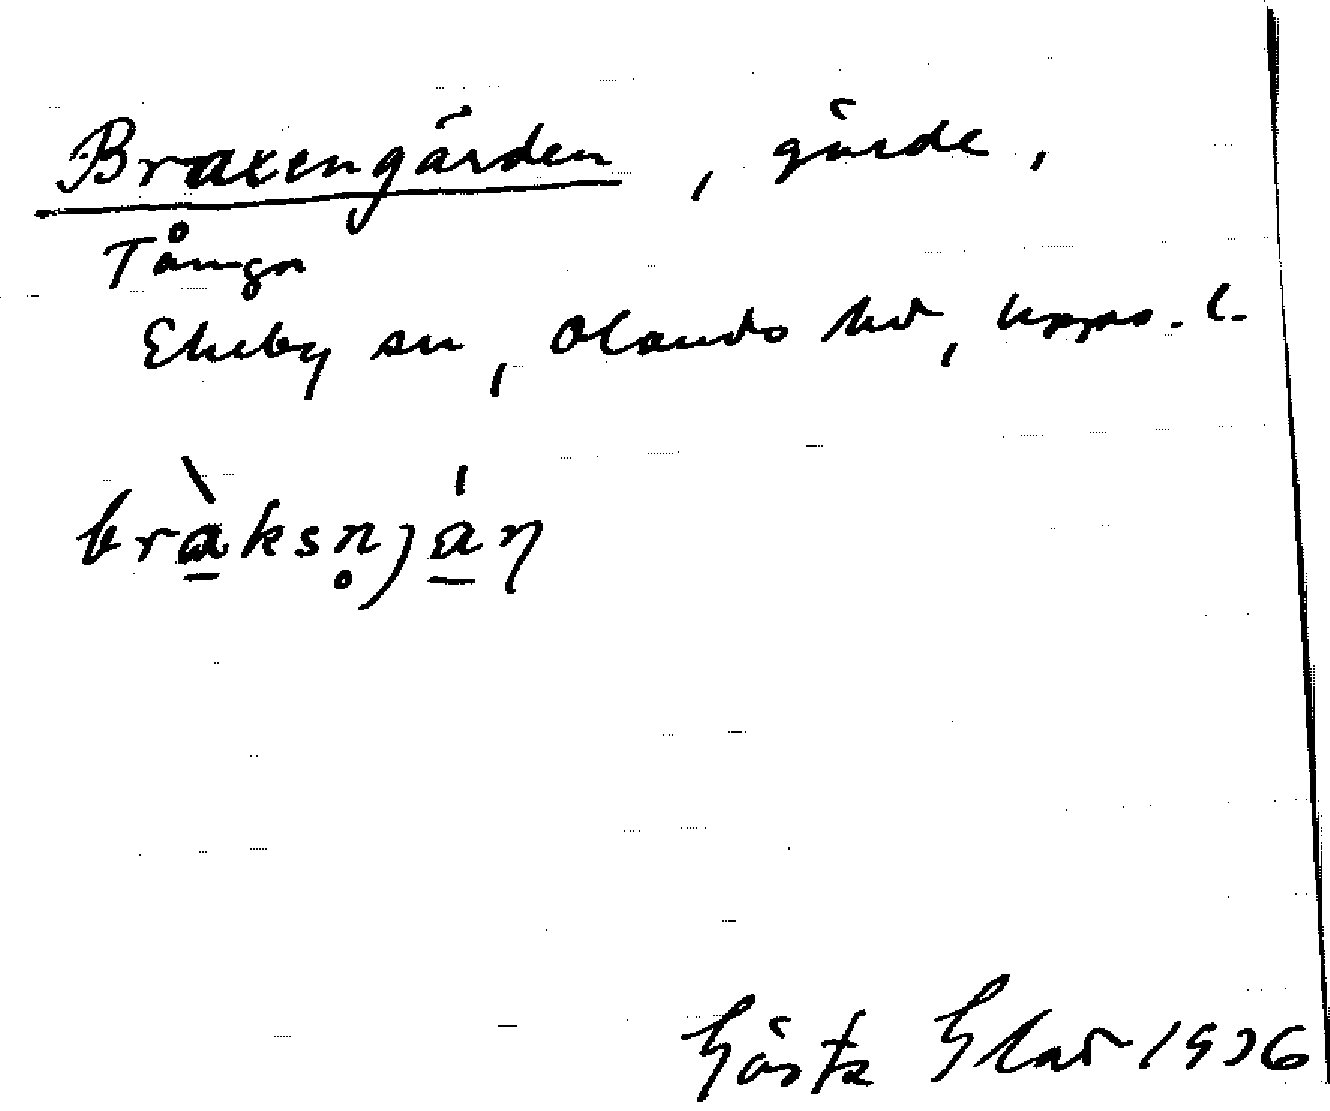 Braxengärden, gärde,
Tånga
Ekeby sn, Olands hd, Upps. l.
bràksn̥ján
Gösta Glad 1936